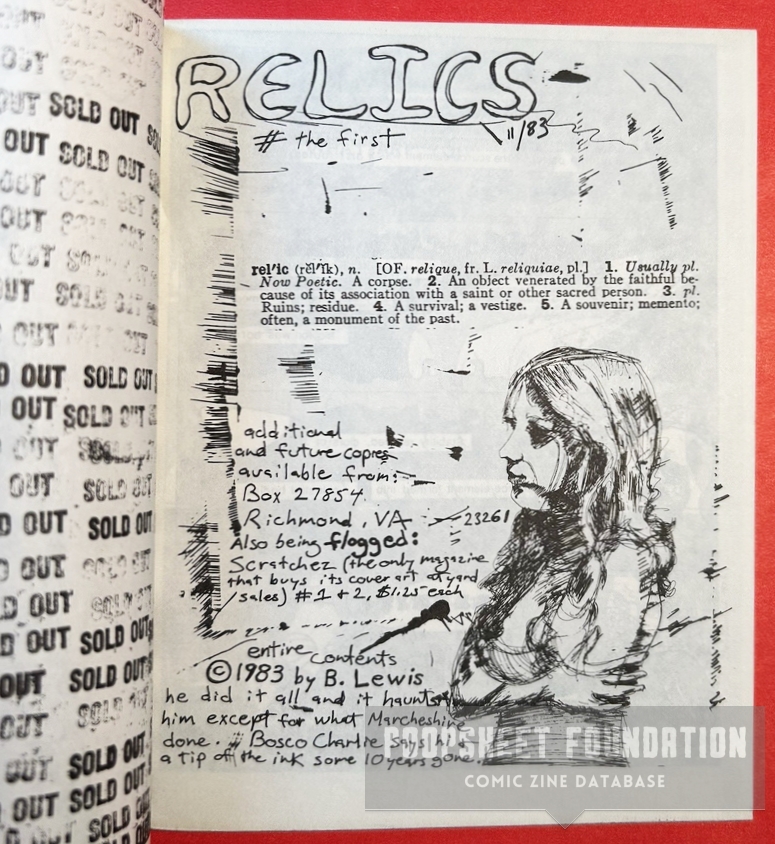 OUT SOLD OUT
OUT SOLD OUT
OUT SOLD OUT
OUT SOLD OUT
OUT SOLD OUT
OUT
OUT SOLD OUT
OUT SOLD OUT
OUT SOLD OUT
OUT SOLD OUT
OUT SOLD OUT
OUT SOLD OUT
OUT SOLD OUT
OUT SOLD OUT
OUT SOLD OUT
RELICS
# the first
11/83
rel'ic (rĕl'ĭk), n. [OF. relique, fr. L. reliquiae, pl.] 1. Usually pl.
Now Poetic. A corpse. 2. An object venerated by the faithful be-
cause of its association with a saint or other sacred person. 3. pl.
Ruins; residue. 4. A survival; a vestige. 5. A souvenir; memento;
often, a monument of the past.
additional
and future copies
available from:
Box 27854
Richmond, VA 23261
Also being flogged:
Scratchez (the only magazine
that buys its cover art at yard
sales) #1 + 2, $1.25 each
entire contents
©1983 by B. Lewis
he did it all and it haunts
him except for what Marcheshire
done. Bosco Charlie says hi
a tip of the ink some 10 years gone.
FOUNDATION
COMIC ZINE DATABASE